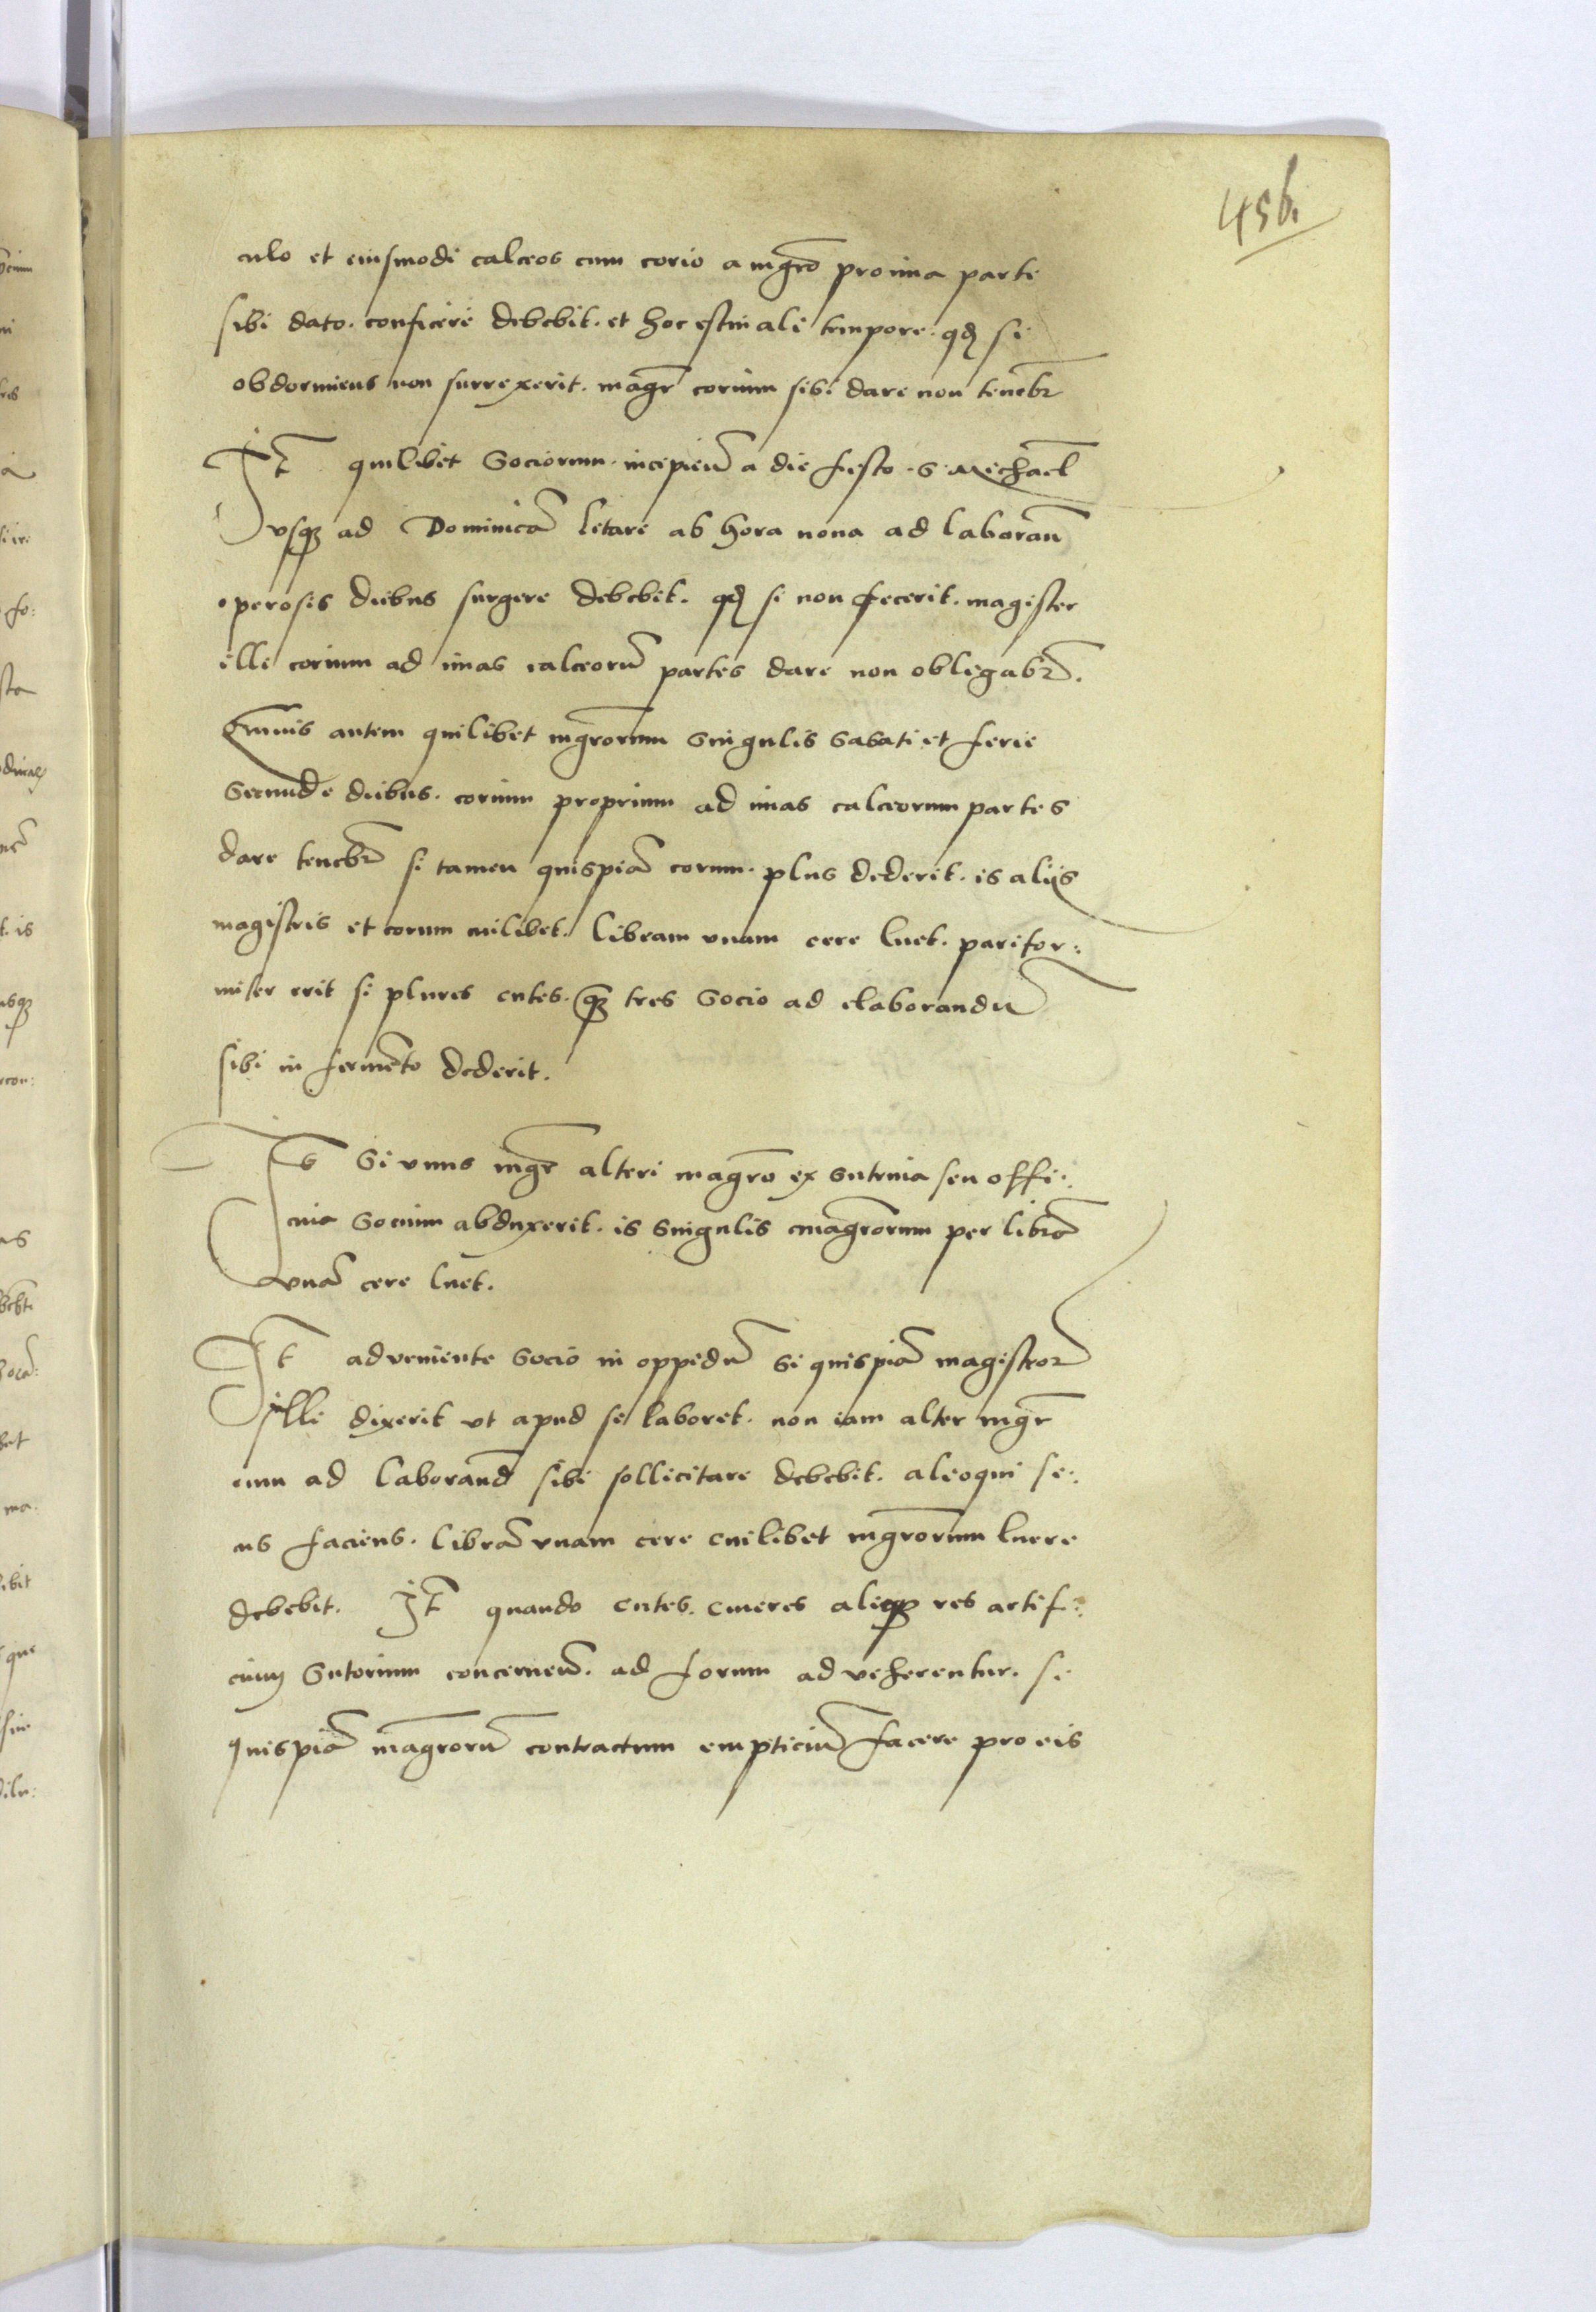 456.
culo et eiusmodi calceos cum corio a mgro pro ima parte
sibi dato. conficere debebit. et hoc estiuali tempore. qd si
obdormiens non surrexerit. magr corium sibi dare non tenebr
It quilibet Sociorum. incipien a die festo. S. Michael
vsq ad Dominica letare ab hora nona ad laboran
operosis diebus surgere debebit. qd si non fecerit. magister
ille corium ad imas calceoru partes dare non obligabr.
Quiuis autem quilibet mgrorum Singulis Sabati et ferie
Secunde diebus. corium proprium ad imas calceorum partes
dare tenebr si tamen quispia eorum. plus dederit. is aliis
magistris et eorum cuilibet. libram vnam cere luet. parifor:
miter erit si plures cutes. q tres Socio ad elaborandu
sibi in fermeto dederit.
It Si vnus mgr alteri magro ex Sutrina seu offi:
cina Socium abduxerit. is Singulis magrorum per libra
vna cere luet.
It adveniente Socio in oppidu Si quispia magistror
illi dixerit vt apud se laboret. non iam alter mgr
eum ad laborand sibi sollicitare debebit. alioqui se:
cus faciens. libra vnam cere cuilibet mgrorum luere
debebit. It quando cutes. cineres aliq res artifi:
cium Sutorium concernen. ad forum adveherentur. si
quispia magroru contractum empticiu facere pro eis